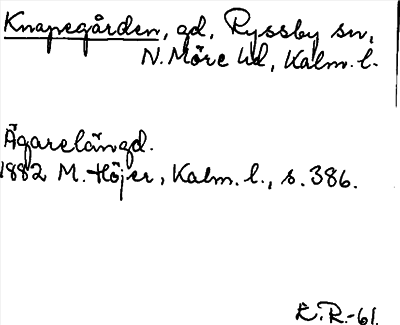 Knapegården, gd, Ryssby sn,
N. Möre hd, Kalm. l.
Ägarelängd.
1882 M. Höjer, Kalm. l., s. 386.
E. R.-61.